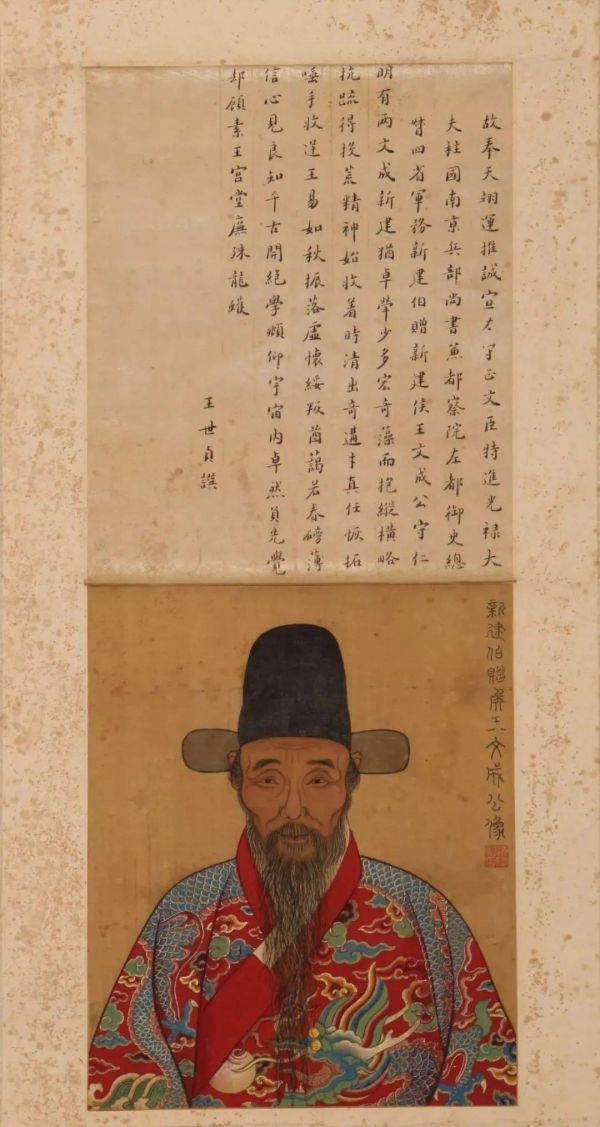 故奉天翊運推誠宣力守正文臣特進光祿大
夫柱國南京兵部尚書兼都察院左都御史總
督四省軍務新建伯贈新建侯王文成公守仁
明有两文成新建猶卓犖少多宏奇藻而抱縱橫略
抗疏得投荒精神始收着時清出奇遘才真任恢拓
唾手收逆王易如秋振落虛懷綏叛酋藹若春磅薄
信心見良知千古開絕學頫仰宇宙内卓然負先覺
却顧素王宮堂廡殊龍蠖
王世貞譔
新建伯贈矦王文成公像